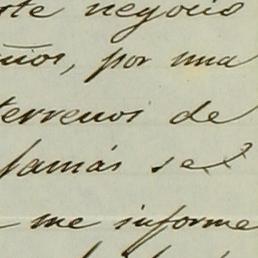 negocio
por una
terrenos de
Jamás se
me informe